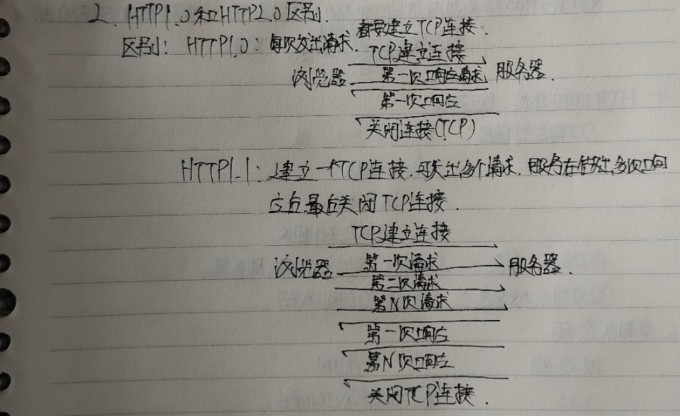 2. HTTP1.0和HTTP2.0区别.
区别: HTTP1.0: 每次发出请求, 都要建立TCP连接.
TCP建立连接
浏览器 第一次响应请求 服务器.
第一次响应
关闭连接(TCP)
HTTP1.1: 建立一个TCP连接. 可发出多个请求. 服务在做出多次响
应后最后关闭TCP连接.
TCP建立连接
浏览器 第一次请求 服务器.
第二次请求
第N次请求
第一次响应
第N次响应
关闭TCP连接.